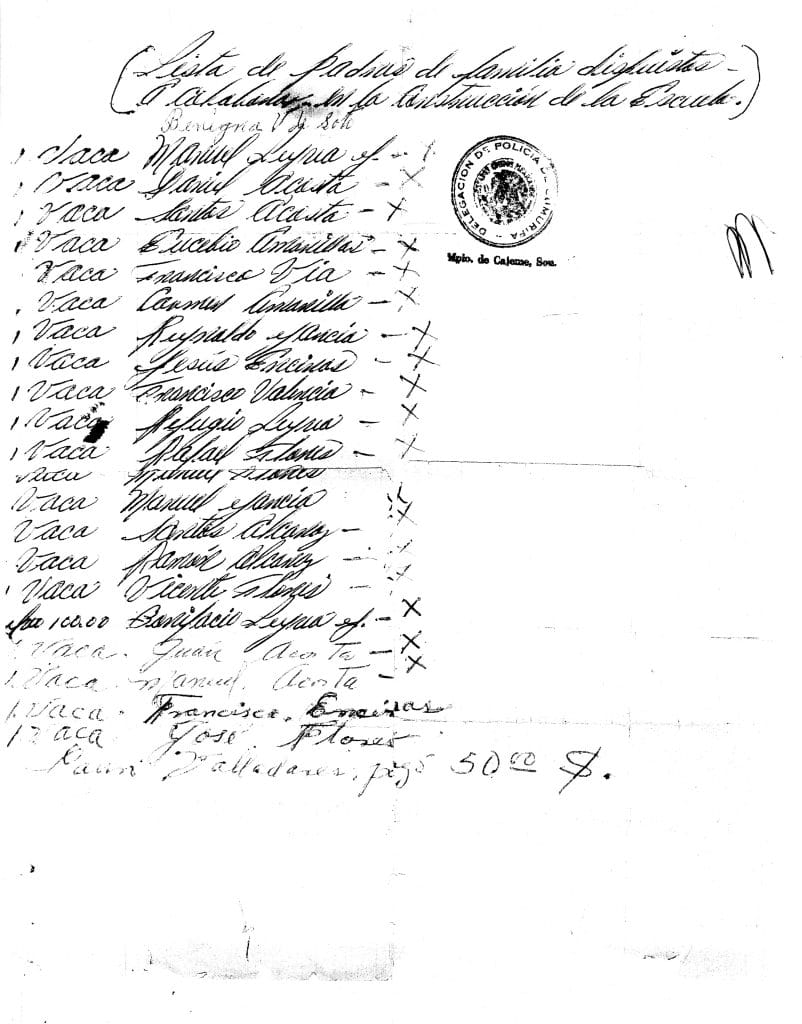 (Lista de padres de familia dispuestos -
a colaborar - en la Construcción de la Escuela.)
Benigna V de Soto
1 Vaca Manuel Leyva J. - X
1 Vaca Daniel Acosta - X
1 Vaca Santos Acosta - X
1 Vaca Eucebio Amarillas - X
Vaca Francisco Via - X
1 Vaca Carmen Amarilla - X
1 Vaca Reynaldo Garcia - X
1 Vaca Jesús Encinas - X
1 Vaca Francisco Valencia - X
1 Vaca Refugio Leyva - X
1 Vaca Rafael Flores - X
Vaca Manuel Flores
Vaca Manuel Garcia X
Vaca Santos Alcaraz - X
Vaca Ramón Alcaraz - X
1 Vaca Vicente Flores - X
100.00 Bonifacio Leyva J. - X
1 Vaca. Juan Acosta - X
1 Vaca. Manuel Acosta - X
1 Vaca. Francisco. Encinas
1 Vaca José Flores
Valladares, pagó 50.00 $.
DELEGACION DE POLICIA DE
Mpio. de Cajeme, Son.